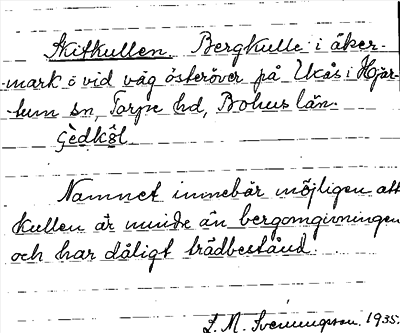 Skitkullen. Bergkulle i åker-
mark ö vid väg österöver på Ukås i Hjär-
tum sn, Torpe hd, Bohus län.
Namnet innebär möjligen att
kullen är mindre än bergomgivningen
och har dåligt trädbestånd.
L. M. Svenungsson. 1935.